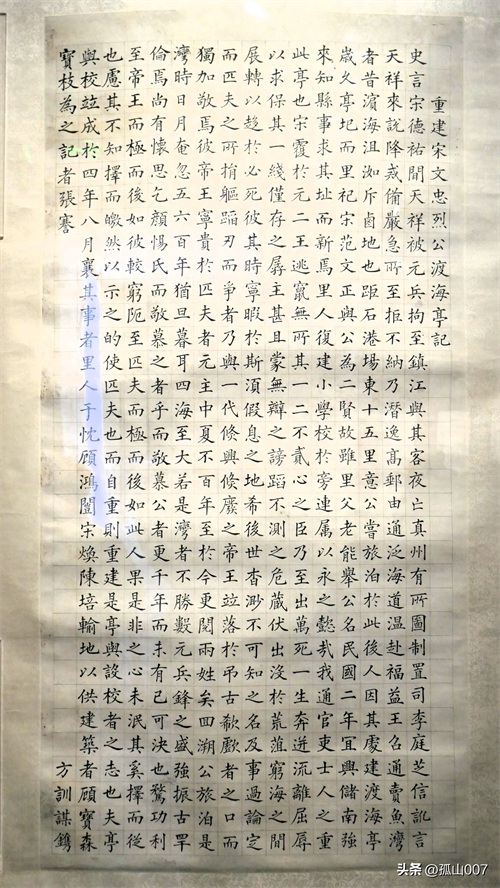 重建宋文忠烈公渡海亭記
史言宋德祐間天祥被元兵拘至鎮江與其客夜亡真州有所圖制置司李庭芝信訛言
天祥來說降戒備嚴急所至拒不納乃潛逸高郵由通泛海道溫赴福益王召通賣魚灣
者昔濱海沮洳斥鹵地也距石港場東十五里意公嘗旅泊於此後人因其處建渡海亭
歲久亭圮而里祀宋范文正與公為二賢故雖里父老能舉公名民國二年宜興儲南強
來知縣事求其址而新焉里人復建小學校於旁連属以永之懿哉我通官吏士人之重
此亭也宋於元二王逃竄無所其一二不貳心之臣乃至出萬死一生奔迸流離屈辱
以求保其一綫僅存之孱主甚且蒙無辯之謗蹈不測之危蔵伏出沒於荒菹窮海之間
展轉以趁於必死彼其時寧暇於斯須假息之地希後世杳渺不可知之名及事過論定
而匹夫之所捐軀蹈刃而爭者乃與一代倏興倏廢之帝王竝落於弔古欷歔者之口而
獨加敬焉彼帝王寧貴於匹夫者元主中夏不百年至於今更閱兩姓矣四溯公旅泊是
灣時日月奄忽五六百年猶旦暮耳四海至大若是灣者不勝數元兵鋒之盛強振古罕
倫焉尚有懷思乞顏惕氏而敬慕之者乎而敬慕公者更千年而未有已可決也騖功利
至帝王而極而後如彼較窮阨至匹夫而極而後如此人果是非之心未泯其奚擇而從
也慮其不知擇而皦然以示之的使匹夫也而自重則重建是亭與設校者之志也夫亭
與校竝成於四年八月襄其事者里人于忱顧鴻闓宋煥陳培輸地以供建築者顧寶森
寶枝為之記者張謇 方訓謀鐫
头条 @孤山007